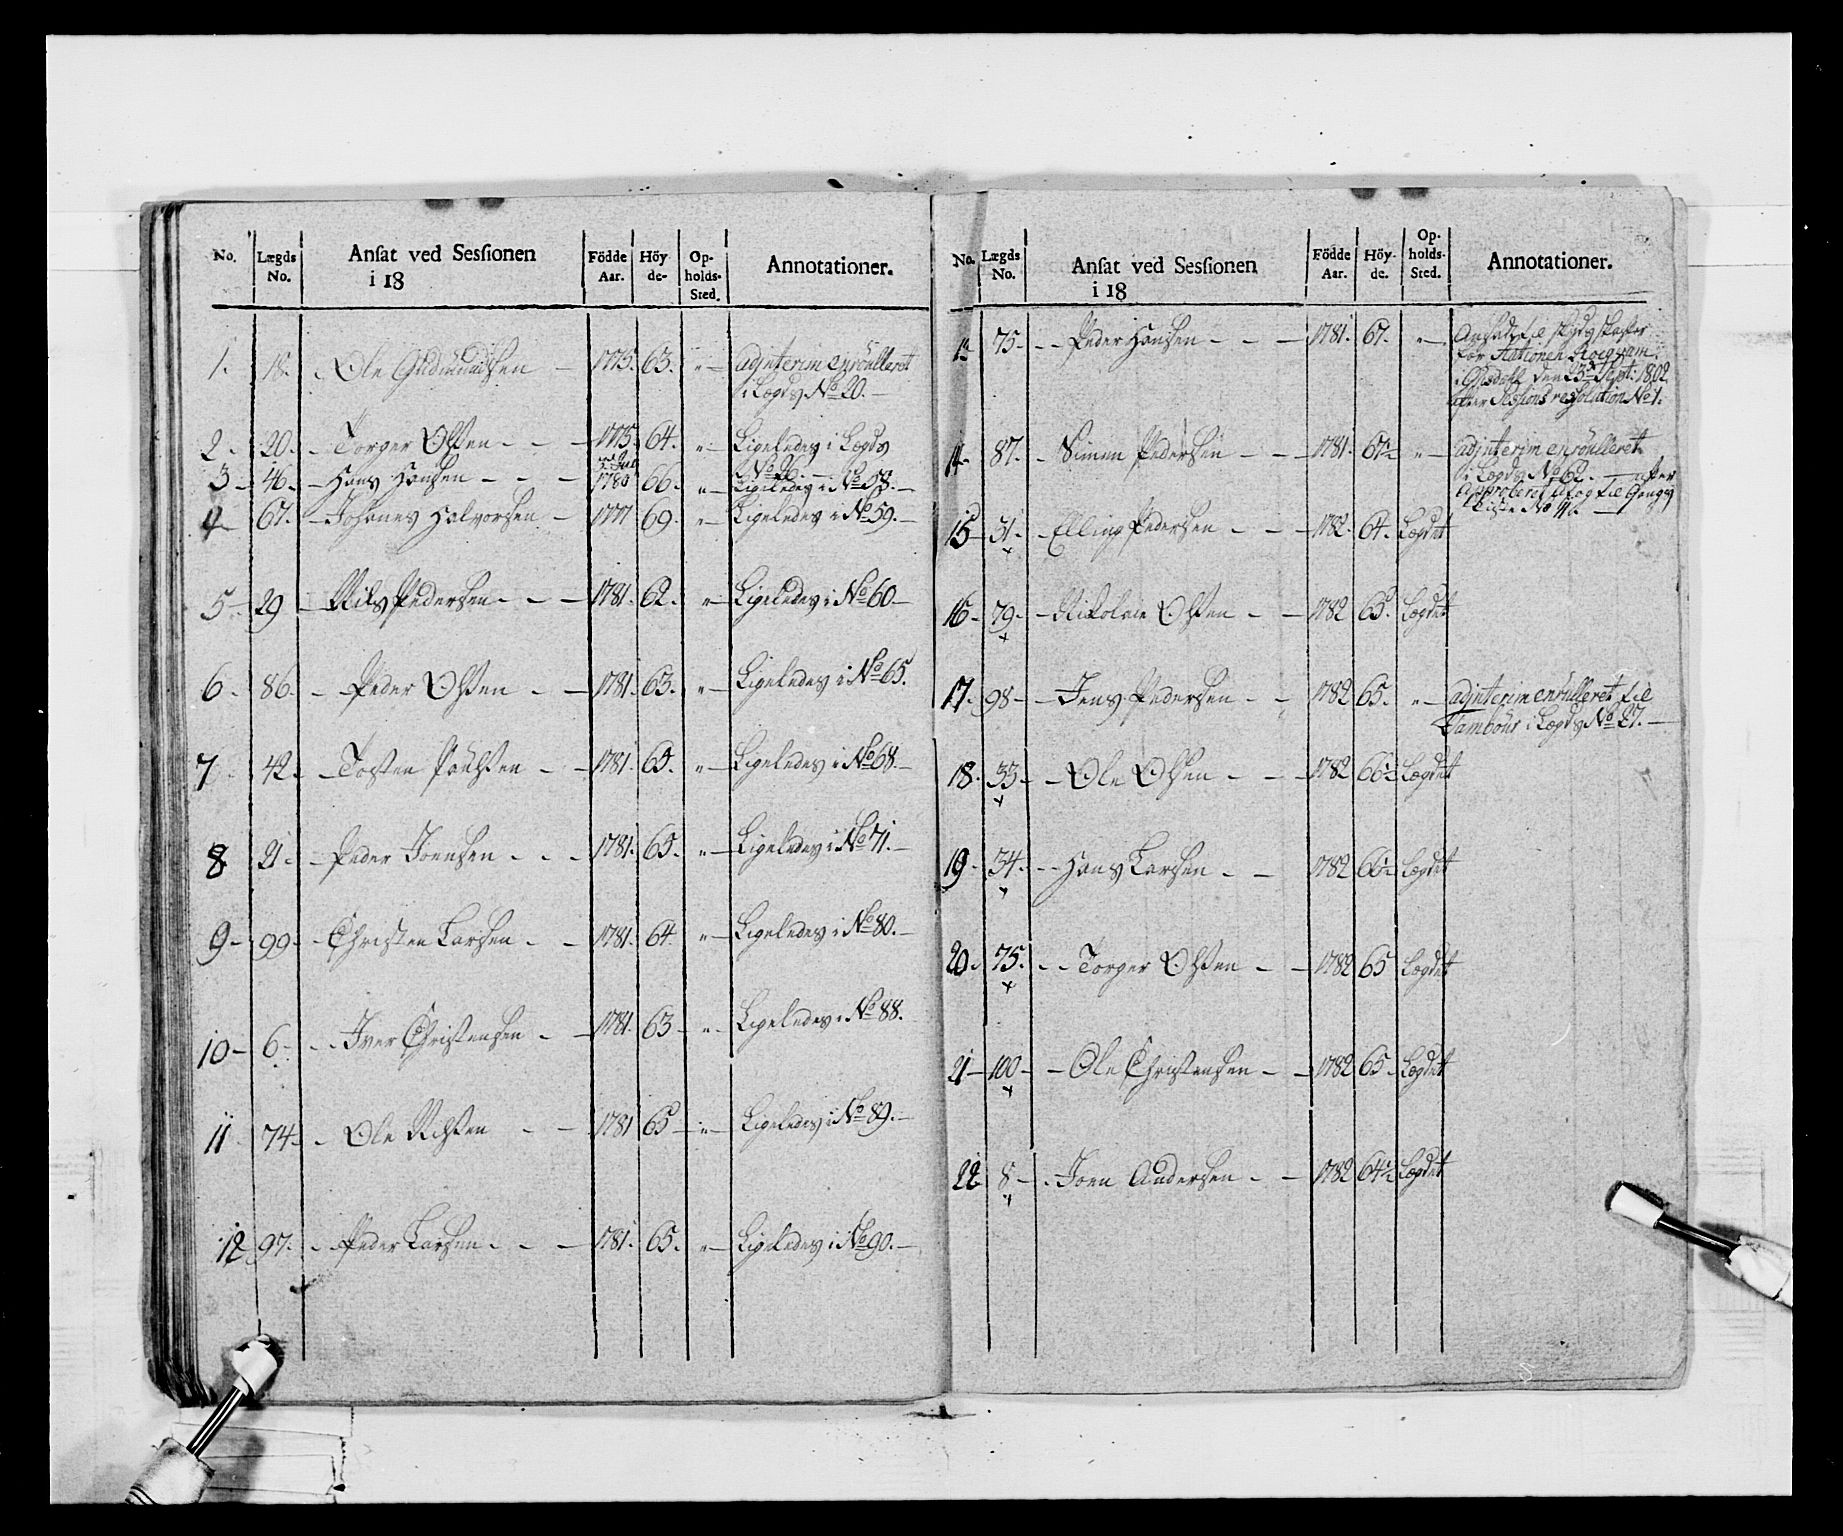 No. Lægds No. Ansat ved Sessionen i 18 Födde Aar. Höyde- Opholds-Sted. Annotationer.
1. 18. Ole Gudmundsen 1775. 63. " adjnterim enroulleret
i Lægds No 20.
2. 20. Torger Olsen 1775. 64. " Ligeledes i Lægds
No 26.
3. 46. Hans Hansen 1780 66. " Ligeledes i No 58.
4 67. Johanes Halvorsen 1777 69. " Ligeledes i No 59.
5. 29 Nils Pedersen 1781. 62. " Ligeledes i No 60
6. 86. Peder Olsen 1781. 63. " Ligeledes i No 65.
7 42. Tosten Poulsen 1781. 65. " Ligeledes i No 68.
8 21. Peder Joensen 1781. 65. " Ligeledes i No 71.
9 99 Christen Larsen 1781. 64 " Ligeledes i No 80.
10 6 Iver Christensen 1781. 63 " Ligeledes i No 88.
11 74 Ole Nilsen 1781 65 " Ligeledes i No 89.
12 97. Peder Larsen 1781. 65. " Ligeledes i No 90.
No. Lægds No. Ansat ved Sessionen i 18 Födde Aar. Höyde. Opholds-Sted. Annotationer.
13 75 Peder Hansen 1781. 67. "
for Stationen
den 23de Sept: 1802.
efter Sessions resolution No 1.
14 87. Simen Pedersen 1781. 67½ " adjnterim enroulleret
i Lægds No 62. efter
Approberet
Liste No 4.
15 31 Elling Pedersen 1782. 64. Lægdet
x
16. 79. Nikolai Olsen 1782 65. Lægdet
x
17. 98 Jens Pedersen 1782 65. " adjnterim enroulleret til
Tambour i Lægds No 27.
18. 33 Ole Olsen 1782 66½ Lægdet
x
19 34. Hans Larsen 1782 66½ Lægdet
x
20. 75. Torger Olsen 1782 65 Lægdet
x
21 100 Ole Christensen 1782 65 Lægdet
x
22 8 Joen Andersen 1782 64½ Lægdet
x